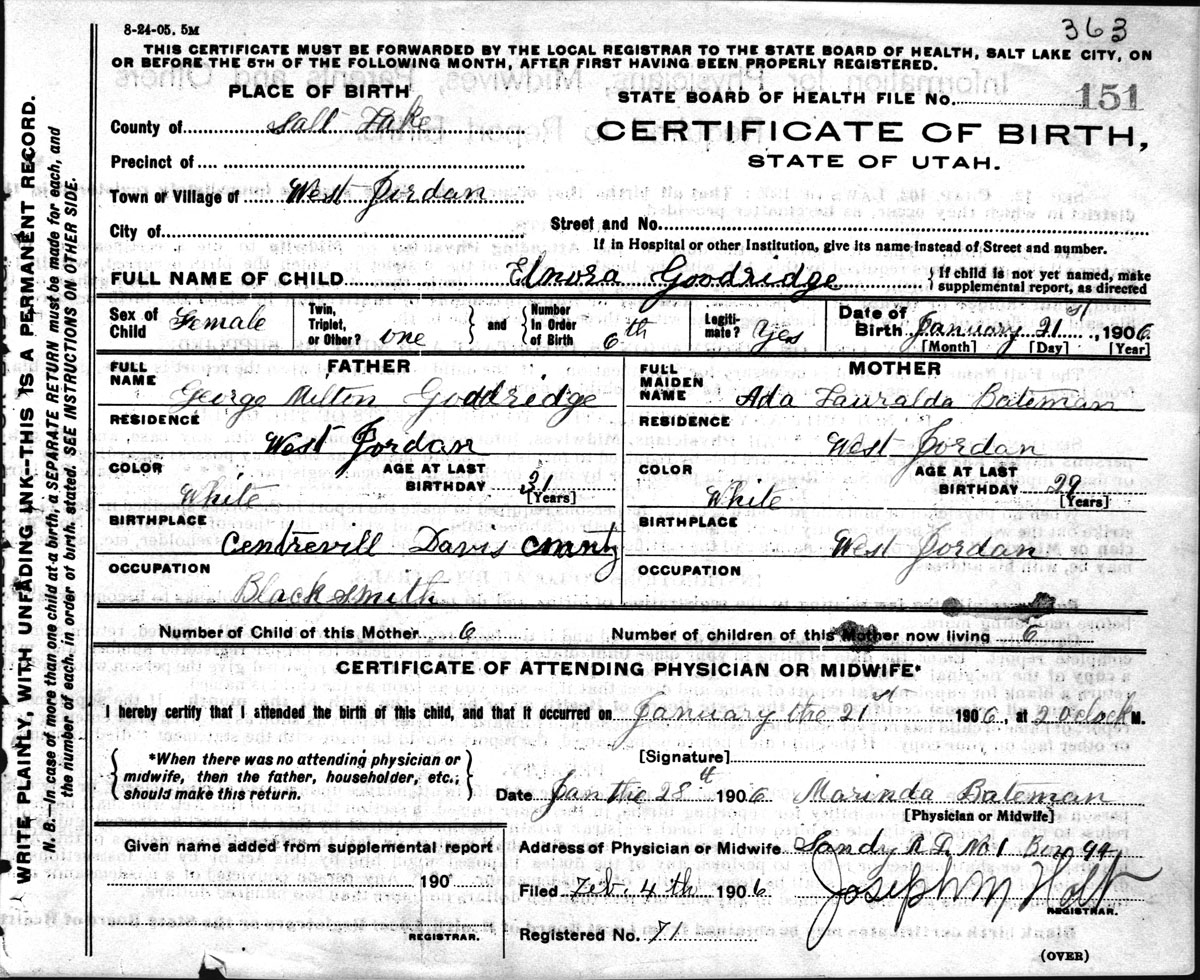 363
8-24-05. 5M
THIS CERTIFICATE MUST BE FORWARDED BY THE LOCAL REGISTRAR TO THE STATE BOARD OF HEALTH, SALT LAKE CITY, ON
OR BEFORE THE 5TH OF THE FOLLOWING MONTH, AFTER FIRST HAVING BEEN PROPERLY REGISTERED.
PLACE OF BIRTH
STATE BOARD OF HEALTH FILE No. 151
County of Salt Lake
CERTIFICATE OF BIRTH,
STATE OF UTAH.
Precinct of
Town or Village of West Jordan
City of
Street and No.
If in Hospital or other Institution, give its name instead of Street and number.
FULL NAME OF CHILD Elnora Goodridge { If child is not yet named, make supplemental report, as directed
Sex of Child Female Twin, Triplet, or Other? one } and { Number In Order of Birth 6th Legitimate? Yes Date of Birth January 21st, 1906
[Month] [Day] [Year]
FATHER
FULL NAME George Milton Goodridge
RESIDENCE
West Jordan
COLOR White AGE AT LAST BIRTHDAY 31
[Years]
BIRTHPLACE
Centrevill Davis County
OCCUPATION
Blacksmith
MOTHER
FULL MAIDEN NAME Ada Lauralda Bateman
RESIDENCE
West Jordan
COLOR White AGE AT LAST BIRTHDAY 29
[Years]
BIRTHPLACE
West Jordan
OCCUPATION
Number of Child of this Mother 6 Number of children of this Mother now living 6
CERTIFICATE OF ATTENDING PHYSICIAN OR MIDWIFE*
I hereby certify that I attended the birth of this child, and that it occurred on January the 21st 1906, at 2 Oclock M.
{ *When there was no attending physician or midwife, then the father, householder, etc.; should make this return. }
[Signature]
Date Jan the 28th 1906 Marinda Bateman
[Physician or Midwife]
Given name added from supplemental report
190
REGISTRAR.
Address of Physician or Midwife Sandy R D No 1 Box 94
Filed Feb. 4th 1906 Joseph M Holt
REGISTRAR.
Registered No. 71
(OVER)
WRITE PLAINLY, WITH UNFADING INK—THIS IS A PERMANENT RECORD.
N. B.—In case of more than one child at a birth, a SEPARATE RETURN must be made for each, and
the number of each, in order of birth, stated. SEE INSTRUCTIONS ON OTHER SIDE.